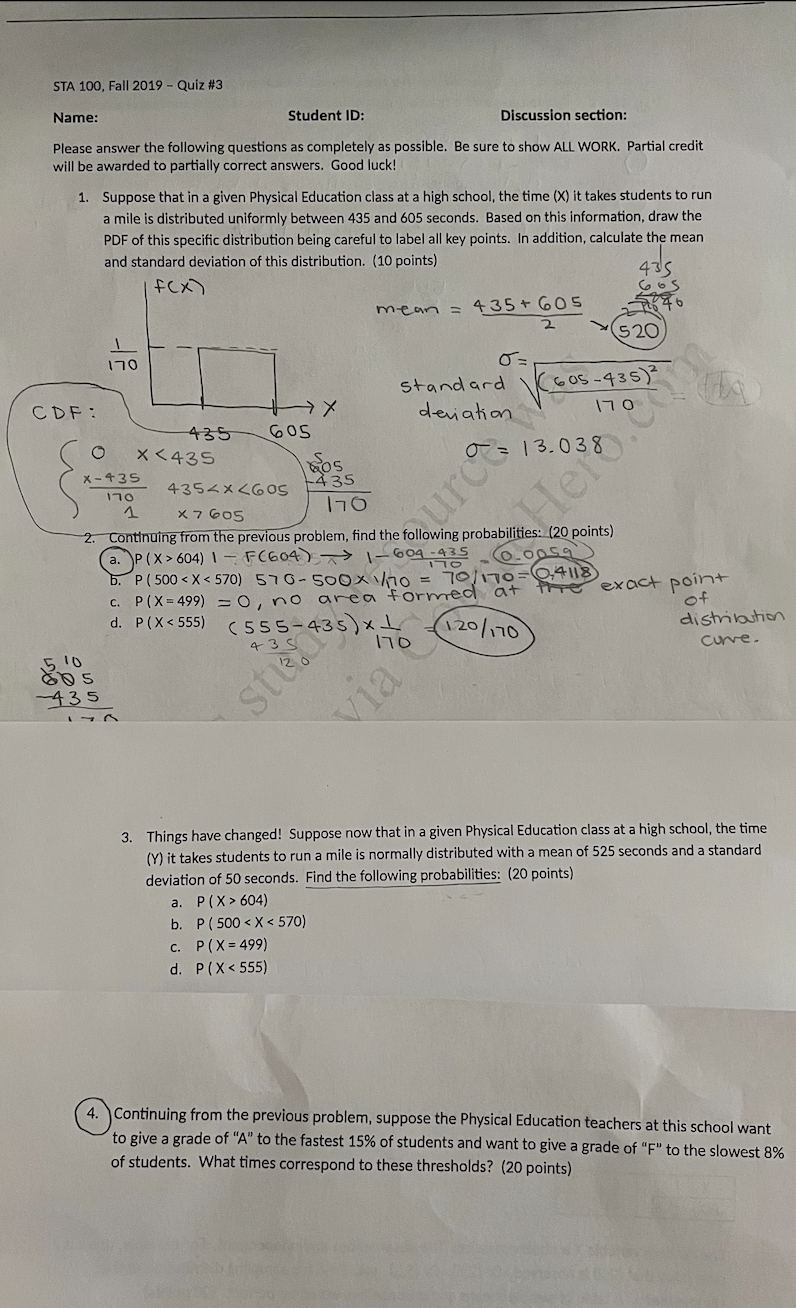 STA 100, Fall 2019 – Quiz #3
Name: Student ID: Discussion section:
Please answer the following questions as completely as possible. Be sure to show ALL WORK. Partial credit
will be awarded to partially correct answers. Good luck!
1. Suppose that in a given Physical Education class at a high school, the time (X) it takes students to run
a mile is distributed uniformly between 435 and 605 seconds. Based on this information, draw the
PDF of this specific distribution being careful to label all key points. In addition, calculate the mean
and standard deviation of this distribution. (10 points)
f(x)
1/170
435 605 X
mean = 435+605 / 2
435
605
520
standard deviation σ = √(605-435)² / 170
σ = 13.038
CDF:
0 x<435
x-435 / 170 435<x<605
1 x>605
605
-435
170
2. Continuing from the previous problem, find the following probabilities: (20 points)
a. P ( X > 604) 1 - F(604) → 1 - 604-435 / 170 = 0.0059
b. P ( 500 < X < 570) 570-500 x 1/170 = 70/170 = 0.4118
c. P ( X = 499) = 0, no area formed at the exact point
of
distribution
curve.
d. P ( X < 555) (555-435) x 1/170 = 120/170
435
120
5 10
605
-435
170
3. Things have changed! Suppose now that in a given Physical Education class at a high school, the time
(Y) it takes students to run a mile is normally distributed with a mean of 525 seconds and a standard
deviation of 50 seconds. Find the following probabilities: (20 points)
a. P ( X > 604)
b. P ( 500 < X < 570)
c. P ( X = 499)
d. P ( X < 555)
4. Continuing from the previous problem, suppose the Physical Education teachers at this school want
to give a grade of "A" to the fastest 15% of students and want to give a grade of "F" to the slowest 8%
of students. What times correspond to these thresholds? (20 points)